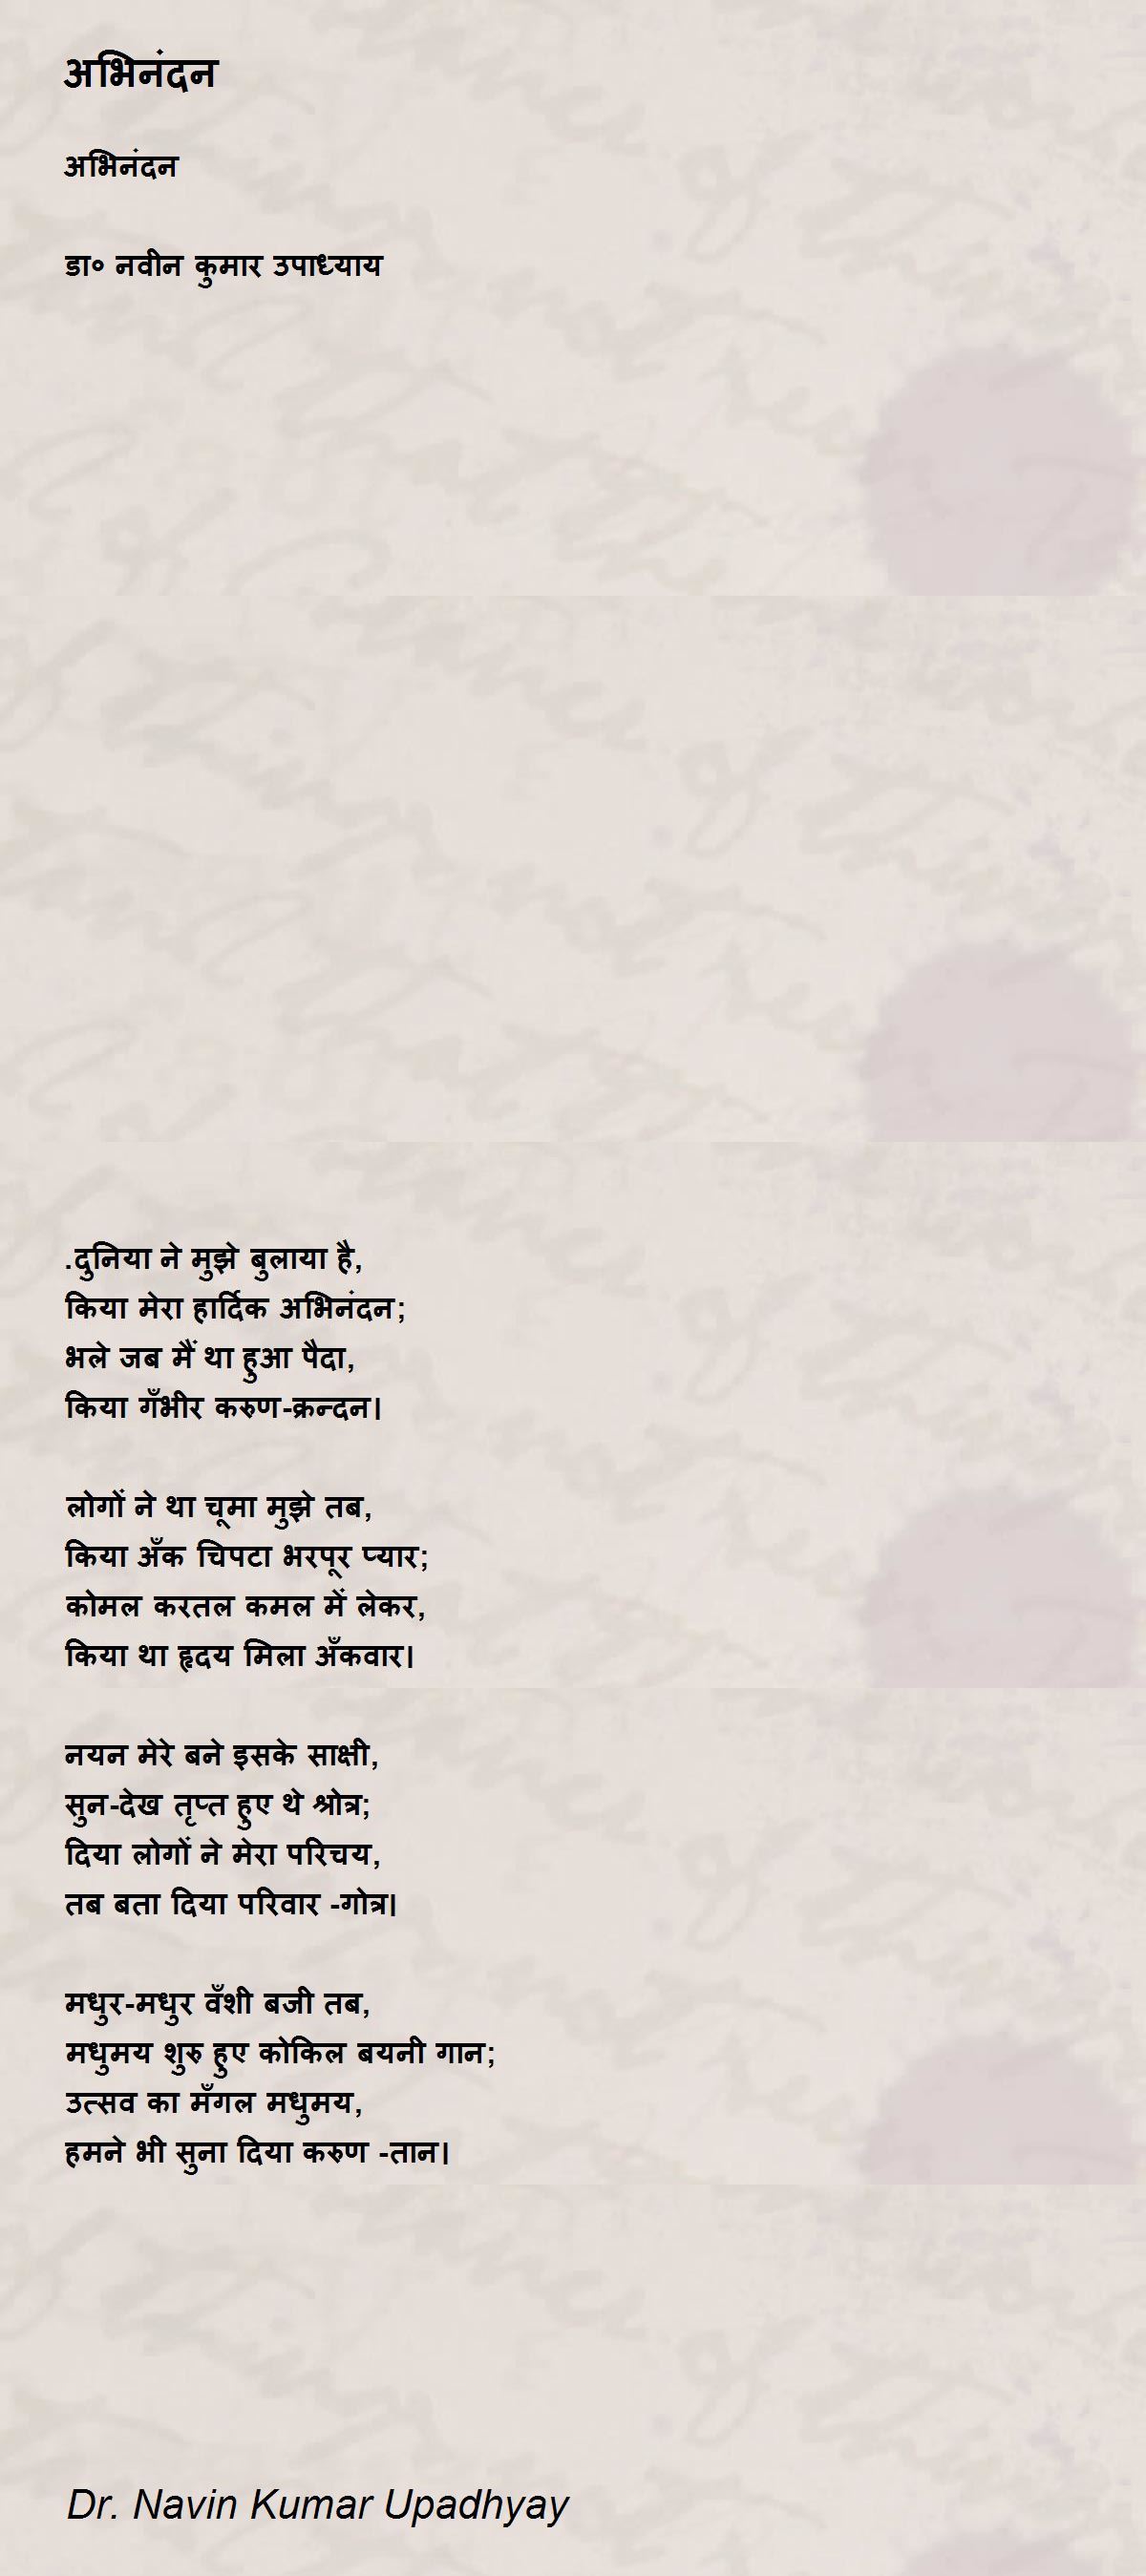 अभिनंदन
अभिनंदन
डा० नवीन कुमार उपाध्याय
.दुनिया ने मुझे बुलाया है,
किया मेरा हार्दिक अभिनंदन;
भले जब मैं था हुआ पैदा,
किया गँभीर करुण-क्रन्दन।
लोगों ने था चूमा मुझे तब,
किया अँक चिपटा भरपूर प्यार;
कोमल करतल कमल में लेकर,
किया था हृदय मिला अँकवार।
नयन मेरे बने इसके साक्षी,
सुन-देख तृप्त हुए थे श्रोत्र;
दिया लोगों ने मेरा परिचय,
तब बता दिया परिवार -गोत्र।
मधुर-मधुर वँशी बजी तब,
मधुमय शुरु हुए कोकिल बयनी गान;
उत्सव का मँगल मधुमय,
हमने भी सुना दिया करुण -तान।
Dr. Navin Kumar Upadhyay